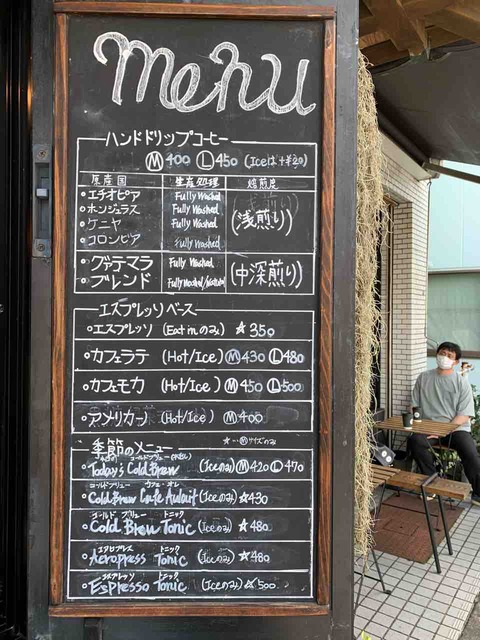 menu
ハンドドリップコーヒー
Ⓜ400 Ⓛ450 (Iceは+¥20)
原産国 生産処理 焙煎度
○エチオピア Fully Washed
○ホンジュラス Fully Washed
○ケニヤ Fully Washed (浅煎り)
○コロンビア Fully Washed
○グァテマラ Fully Washed
○ブレンド Fully Washed/Natural (中深煎り)
エスプレッソベース
○エスプレッソ (Eat inのみ) ☆350
○カフェラテ (Hot/Ice) Ⓜ430 Ⓛ480
○カフェモカ (Hot/Ice) Ⓜ450 Ⓛ500
○アメリカーノ (Hot/Ice) Ⓜ400
季節のメニュー ☆…Ⓜサイズのみ
コールドブリュー
○Today's Cold Brew (Iceのみ) Ⓜ420 Ⓛ470
コールドブリュー カフェ・オレ
○Cold Brew Cafe Aulait (Iceのみ) ☆430
コールド ブリュー トニック
○Cold Brew Tonic (Iceのみ) ☆480
エアロプレス トニック
○Aeropress Tonic (Iceのみ) ☆480
エスプレッソ トニック
○Espresso Tonic (Iceのみ) ☆500